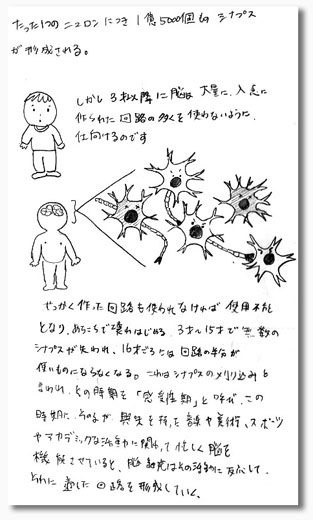 たった1つのニューロンにつき1億5000個ものシナプス
が形成される。
しかし3才以降に脳は大量に、入念に
作られた回路の多くを使わないように
仕向けるのです
せっかく作った回路も使われなければ使用不能
となり、あちこちで壊れはじめる。3才〜15才で無数の
シナプスが失われ、16才ごろには回路の半分が
使いものにならなくなる。これはシナプスの刈り込みと
言われ、その時期を「感受性期」と呼び、この
時期に、その子が興味を持った音楽や美術、スポーツ
やアカデミックな活動に関して忙しく脳を
機能させていると、脳細胞はその活動に反応して、
それに適した回路を形成していく。